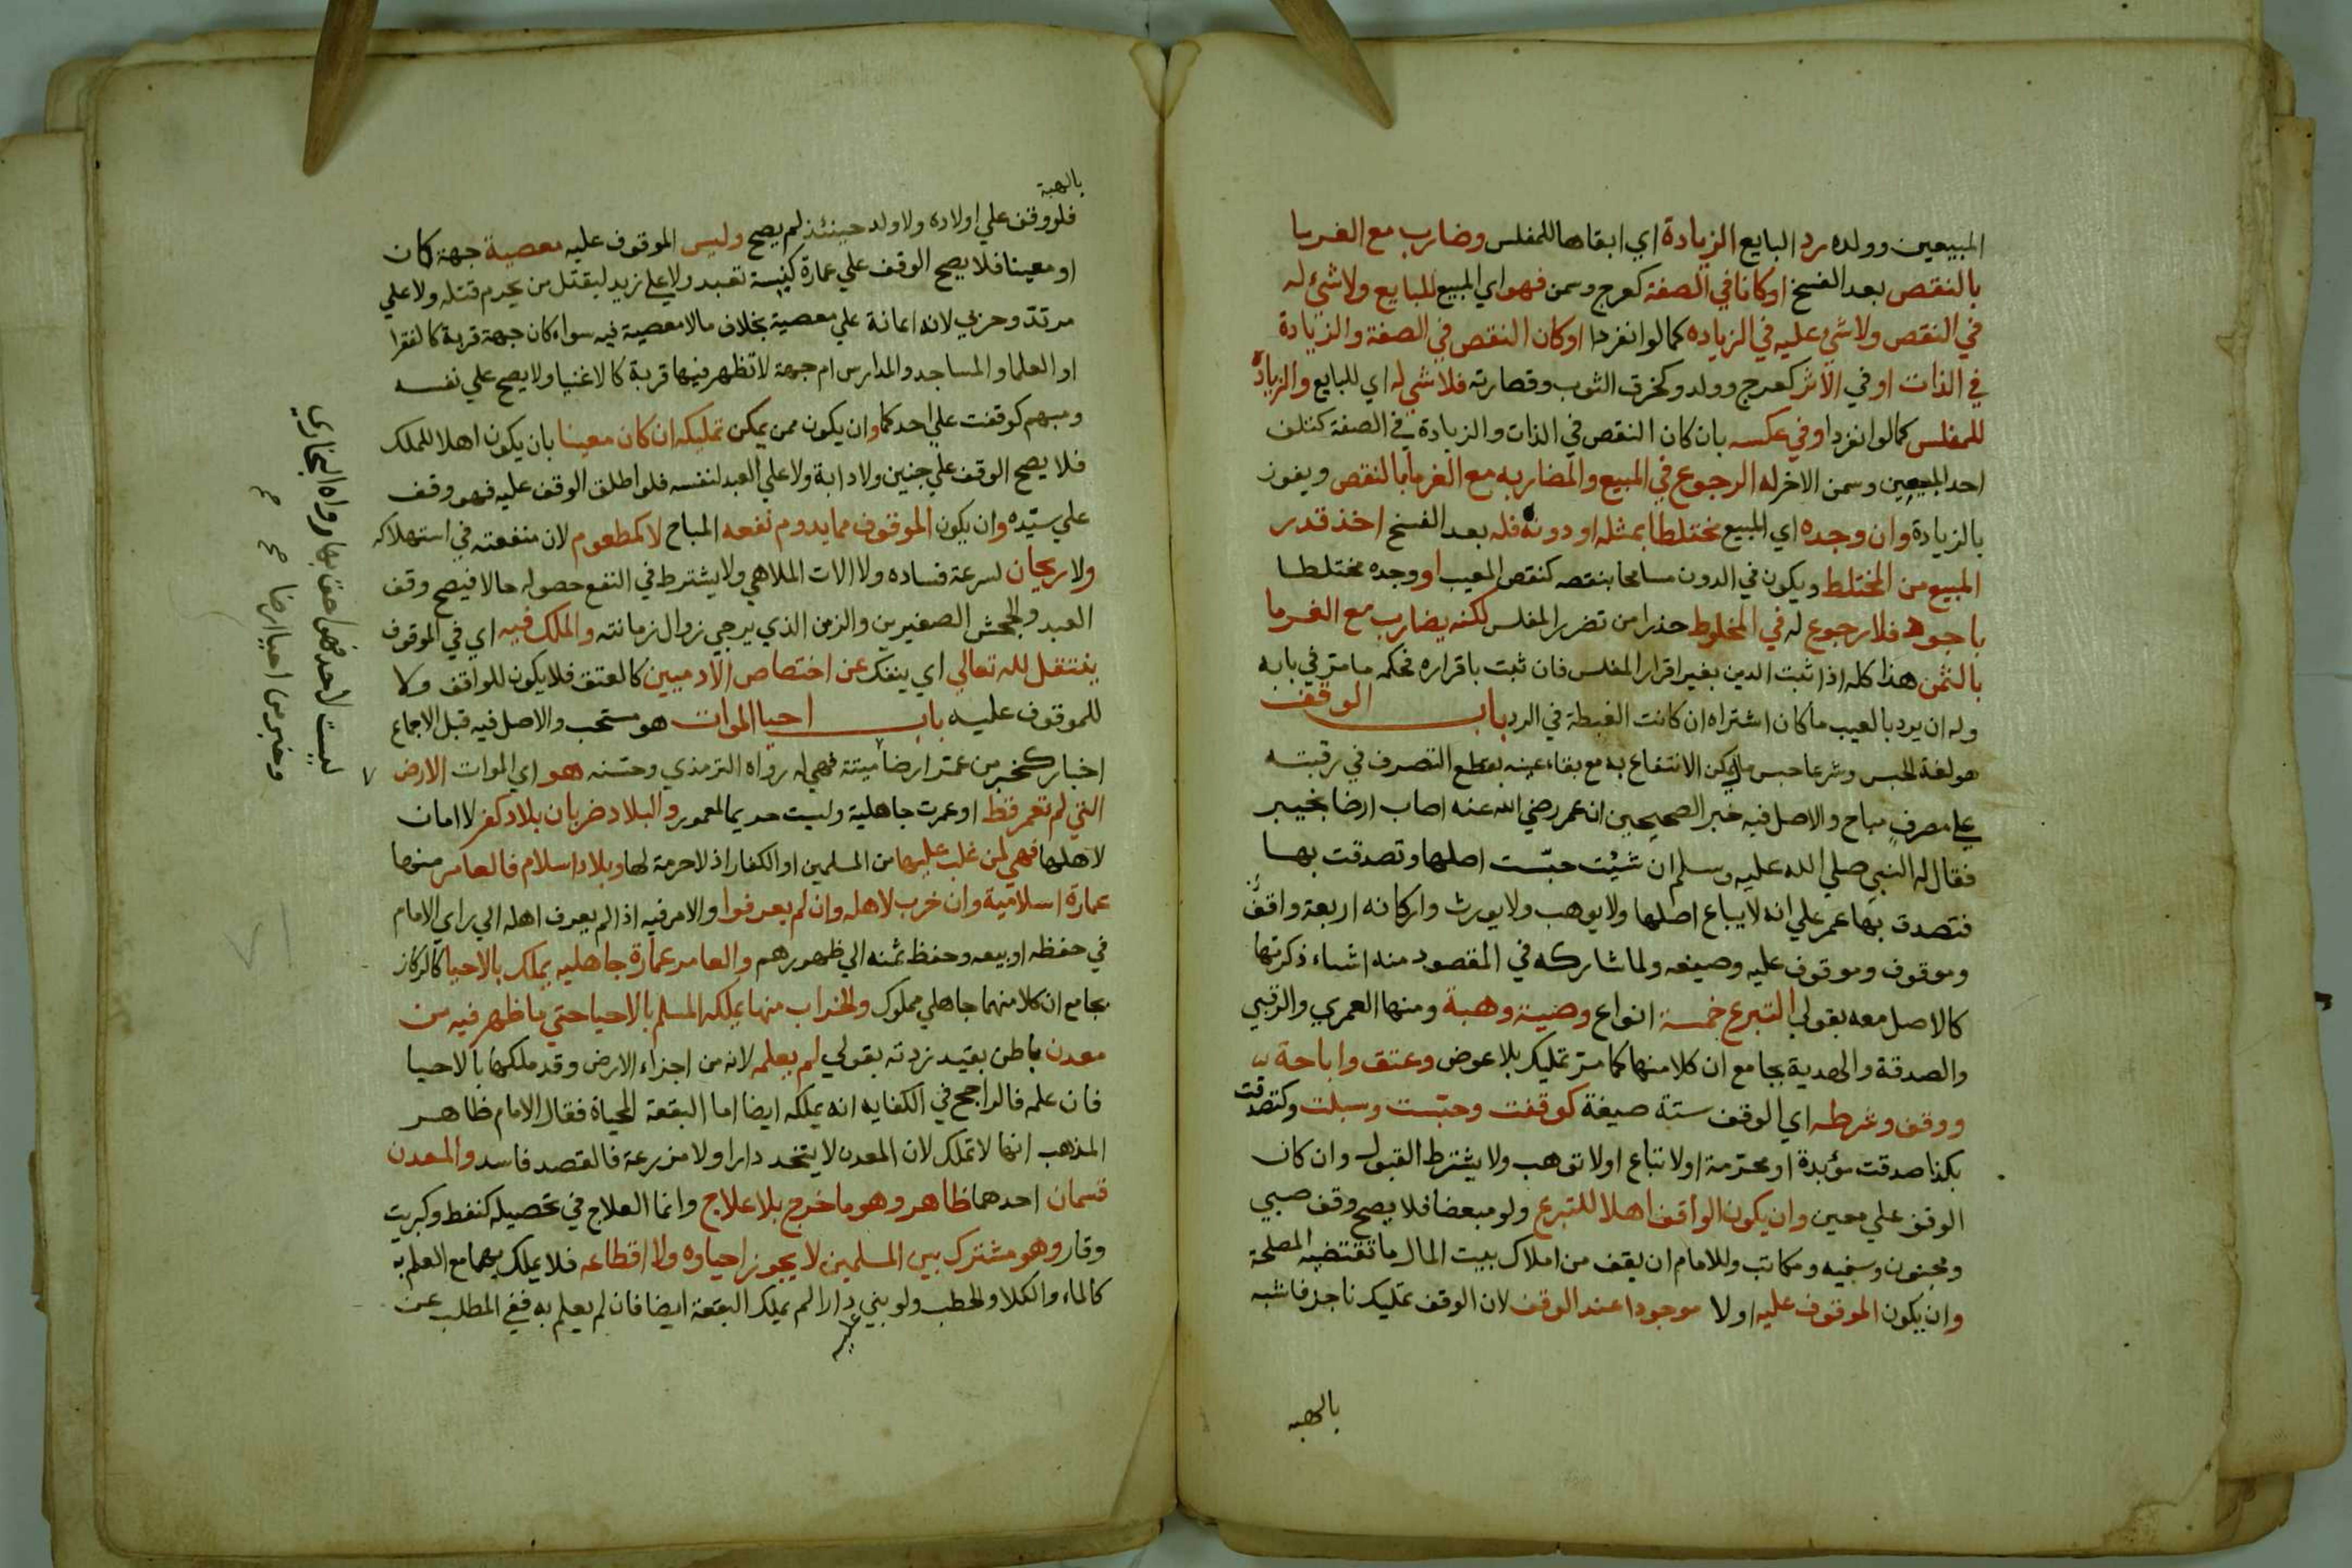 المبيعين وولده رد البايع الزيادة اي ابقاها للمفلس وضارب مع الغرما
بالنقص بعد الفسخ اوكانا في الصفة كعرج وسمن فهو اي المبيع للبايع ولا شيء له
في النقص ولا شيء عليه في الزياده كما لو انفردا اوكان النقص في الصفة والزيادة
في الذات او في الاثر كعرج وولد وكخرق الثوب وقصارته فلا شي له اي للبايع والزيادة
للمفلس كما لو انفردا وفي عكسه بان كان النقص في الذات والزيادة في الصفة كتلف
احد المبيعين وسمن الاخر له الرجوع في المبيع والمضاربه مع الغرما بالنقص ويفوز
بالزيادة وان وجده اي المبيع مختلطا بمثله او دونه فله بعد الفسخ اخذ قدر
المبيع من المختلط ويكون في الدون مسامحا بنقصه كنقص المعيب او وجده مختلطا
باجود فلا رجوع له في المخلوط حذرا من تضرر المفلس لكنه يضارب مع الغرما
بالثمن هذا كله اذا ثبت الدين بغير اقرار المفلس فان ثبت باقراره فحكمه ما مر في بابه
وله ان يرد بالعيب ما كان اشتراه ان كانت الغبطة في الرد باب الوقف
هو لغة الحبس وشرعا حبس ما يمكن الانتفاع به مع بقاء عينه بقطع التصرف في رقبته
علي مصرف مباح والاصل فيه خبر الصحيحين ان عمر رضي الله عنه اصاب ارضا بخيبر
فقال له النبي صلي الله عليه وسلم ان شئت حبّست اصلها وتصدقت بها
فتصدق بها عمر علي انه لا يباع اصلها ولا يوهب ولا يورث واركانه اربعة واقف
وموقوف وموقوف عليه وصيغه ولما شاركه في المقصود منه اشياء ذكرتها
كالاصل معه بقولي التبرع خمسة انواع وصية وهبة ومنها العمري والرقبي
والصدقة والهدية بجامع ان كلا منها كما مر تمليك بلا عوض وعتق واباحة
ووقف وشرطه اي الوقف ستة صيغة كوقفت وحبّست وسبلت وكتصدقت
بكذا صدقت مؤبدة او محرّمة او لا تباع او لا توهب ولا يشترط القبول وان كان
الوقف علي معين وان يكون الواقف اهلا للتبرع ولو مبعضا فلا يصح وقف صبي
ومجنون وسفيه ومكاتب وللامام ان يقف من املاك بيت المال ما تقتضيه المصلحة
وان يكون الموقوف عليه اولا موجودا عند الوقف لان الوقف تمليك ناجز فاشبه
بالهبه
بالهبة
فلو وقف علي اولاده ولا ولد حينئذ لم يصح وليس الموقوف عليه معصية جهة كان
او معينا فلا يصح الوقف علي عمارة كنيسة تعبد ولا علي زيد ليقتل من يحرم قتله ولا علي
مرتد وحربي لانه اعانة علي معصية بخلاف ما لا معصية فيه سواء كان جهة قربة كالفقرا
او العلما والمساجد والمدارس ام جهة لا تظهر فيها قربة كالاغنيا ولا يصح علي نفسه
ومبهم كوقفت علي احدكما وان يكون ممن يمكن تمليكه ان كان معينا بان يكون اهلا للملك
فلا يصح الوقف علي جنين ولا دابة ولا علي العبد لنفسه فلو اطلق الوقف عليه فهو وقف
علي سيّده وان يكون الموقوف مما يدوم نفعه المباح لا كمطعوم لان منفعته في استهلاكه
ولا ريحان لسرعة فساده ولا الات الملاهي ولا يشترط في النفع حصوله حالا فيصح وقف
العبد والجحش الصغيرين والزمن الذي يرجي زوال زمانته والملك فيه اي في الموقوف
ينتقل لله تعالي اي ينفك عن اختصاص الآدميين كالعتق فلا يكون للواقف ولا
للموقوف عليه باب احيا الموات هو مستحب والاصل فيه قبل الاجماع
اخبار كخبر من عمّر ارضا ميتة فهي له رواه الترمذي وحسّنه هو اي الموات الارض
التي لم تعمر قط او عمرت جاهلية وليست حريما لمعمور والبلاد ضربان بلاد كفر لا امان
لاهلها فهي لمن غلب عليها من المسلمين او الكفار اذ لا حرمة لها وبلاد اسلام فالعامر منها
عمارة اسلامية وان خرب لاهله وان لم يعرفوا والامر فيه اذا لم يعرف اهله الي راي الامام
في حفظه او بيعه وحفظ ثمنه الي ظهورهم والعامر عمارة جاهليه يملك بالاحيا كالركاز
بجامع ان كلا منهما جاهلي مملوك والخراب منها يملكه المسلم بالاحيا حتي ما ظهر فيه من
معدن باطن بقيد زدته بقولي لم يعلمه لانه من اجزاء الارض وقد ملكها بالاحيا
فان علمه فالراجح في الكفايه انه يملكه ايضا اما البقعة المحياة فقال الامام ظاهر
المذهب انها لا تملك لان المعدن لا يتخذ دارا ولا مزرعة فالقصد فاسد والمعدن
قسمان احدهما ظاهر وهو ما خرج بلا علاج وانما العلاج في تحصيله كنفط وكبريت
وقار وهو مشترك بين المسلمين لا يجوز احياوه ولا اقطاعه فلا يملك بهما مع العلم به
كالماء والكلا والحطب ولو بني عليه دارا لم يملك البقعة ايضا فان لم يعلم به ففي المطلب عن
وخبر من احيا ارضا
ليست لاحد فهو احق بها رواه البخاري